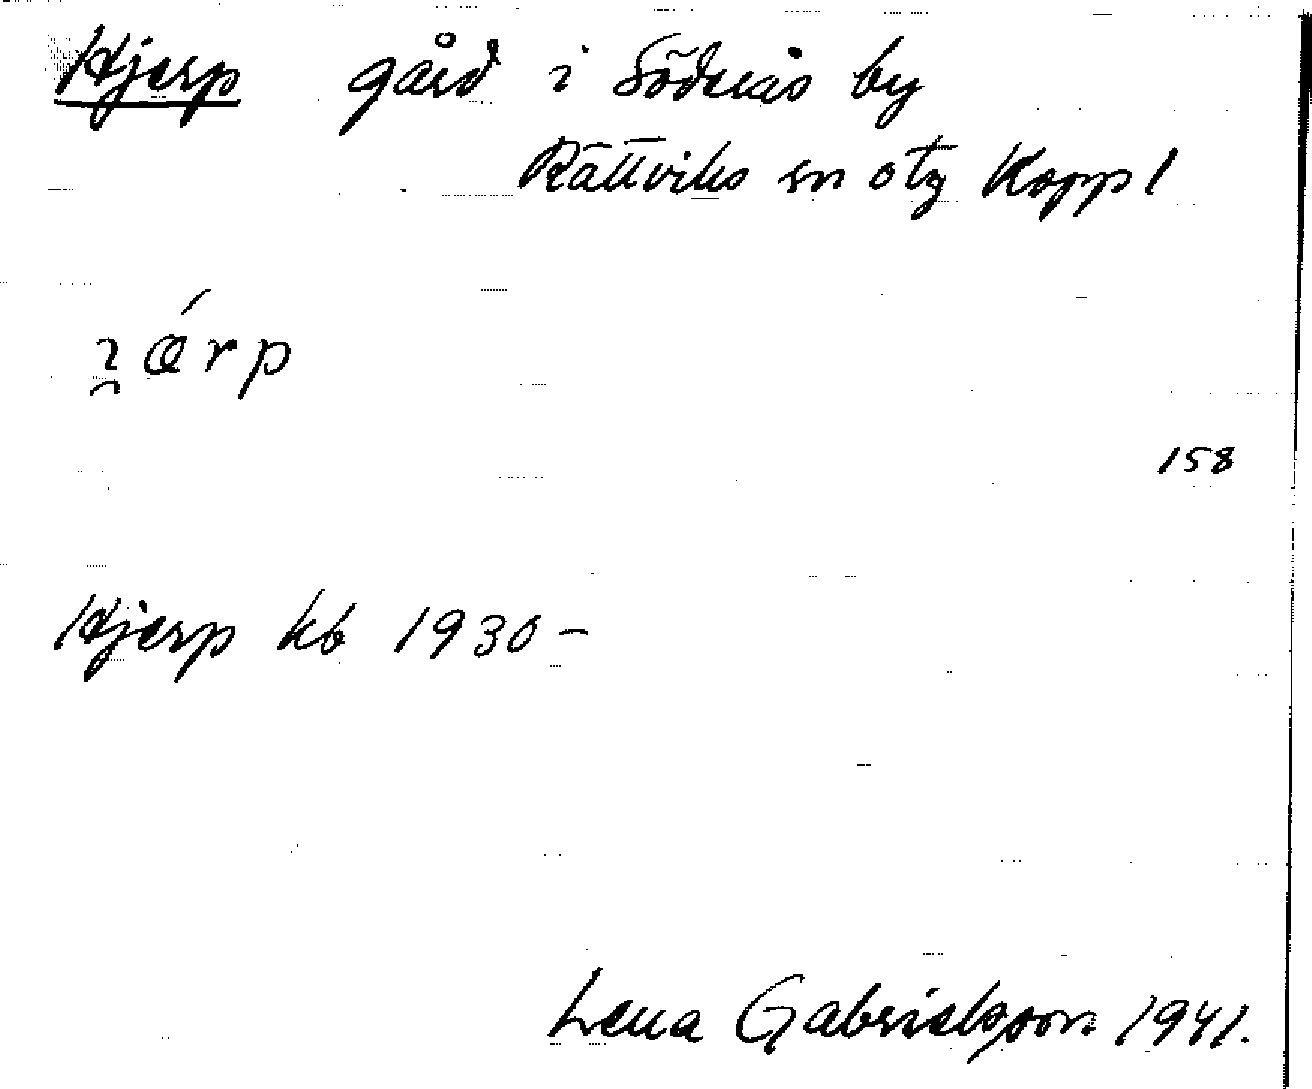 Hjerp gård i Söderås by
Rättviks sn o tg Kopp l
i̯ǽrp
158
Hjerp kb 1930-
Lena Gabrielsson 1941.